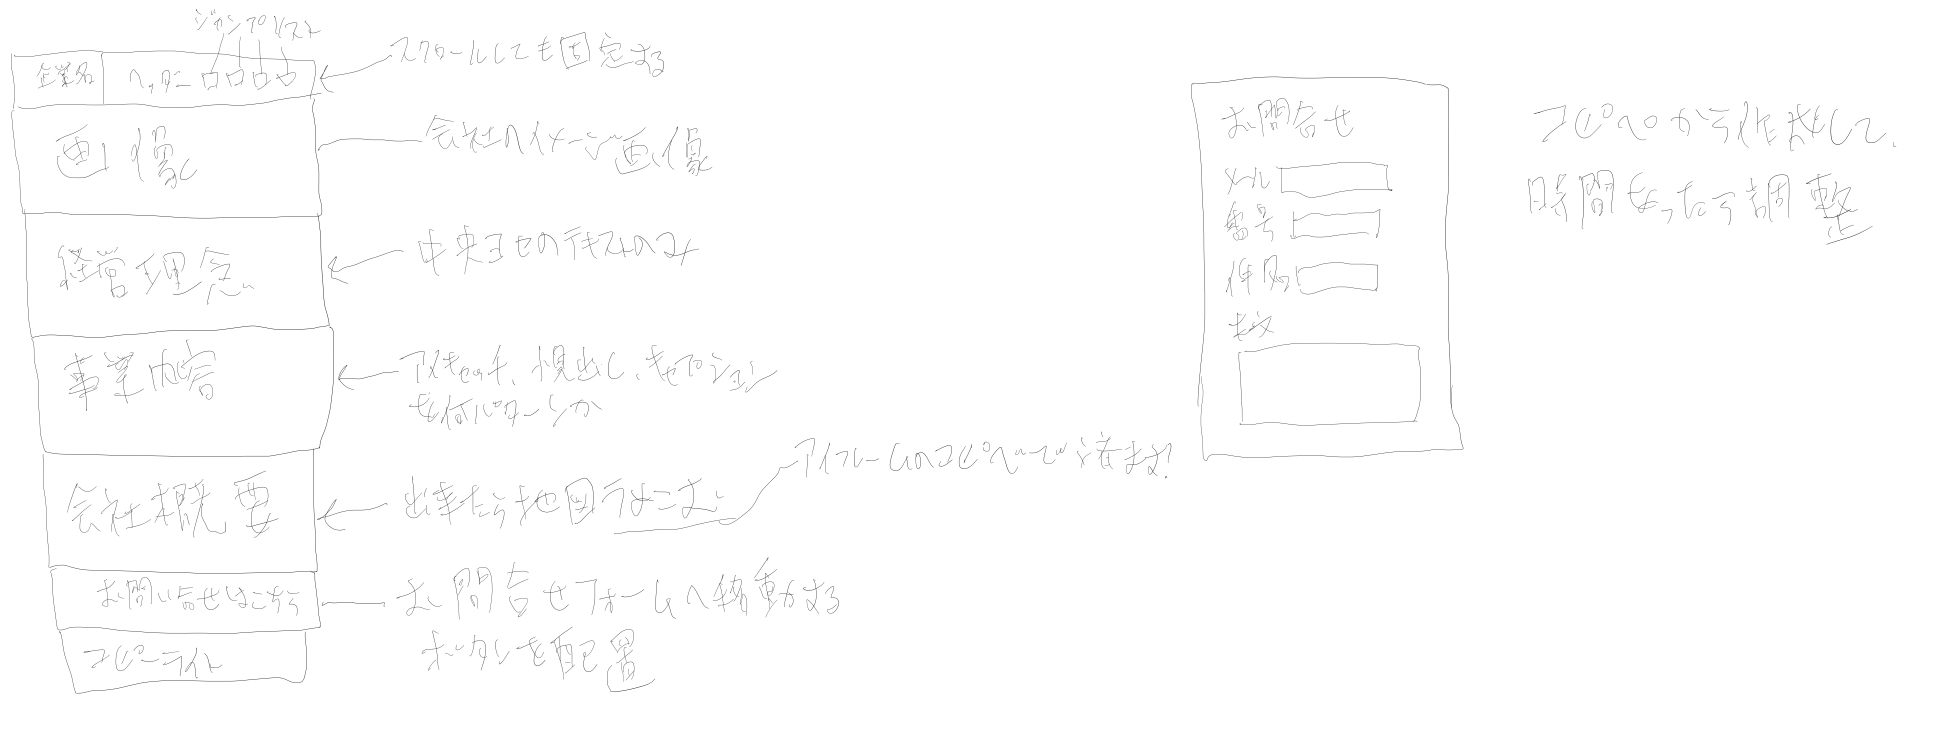 ジャンプリスト
企業名 ヘッダー
スクロールしても固定する
画像
会社のイメージ画像
経営理念
中央ヨセのテキストのみ
事業内容
アイキャッチ、見出し、キャプション
を何パターンか
会社概要
出来たら地図うめこむ
アイフレームのコピペで済ます!
お問い合せはこちら
お問合せフォームへ移動する
ボタンを配置
コピーライト
お問合せ
メール
番号
件名
本文
コピペから作成して、
時間あったら調整